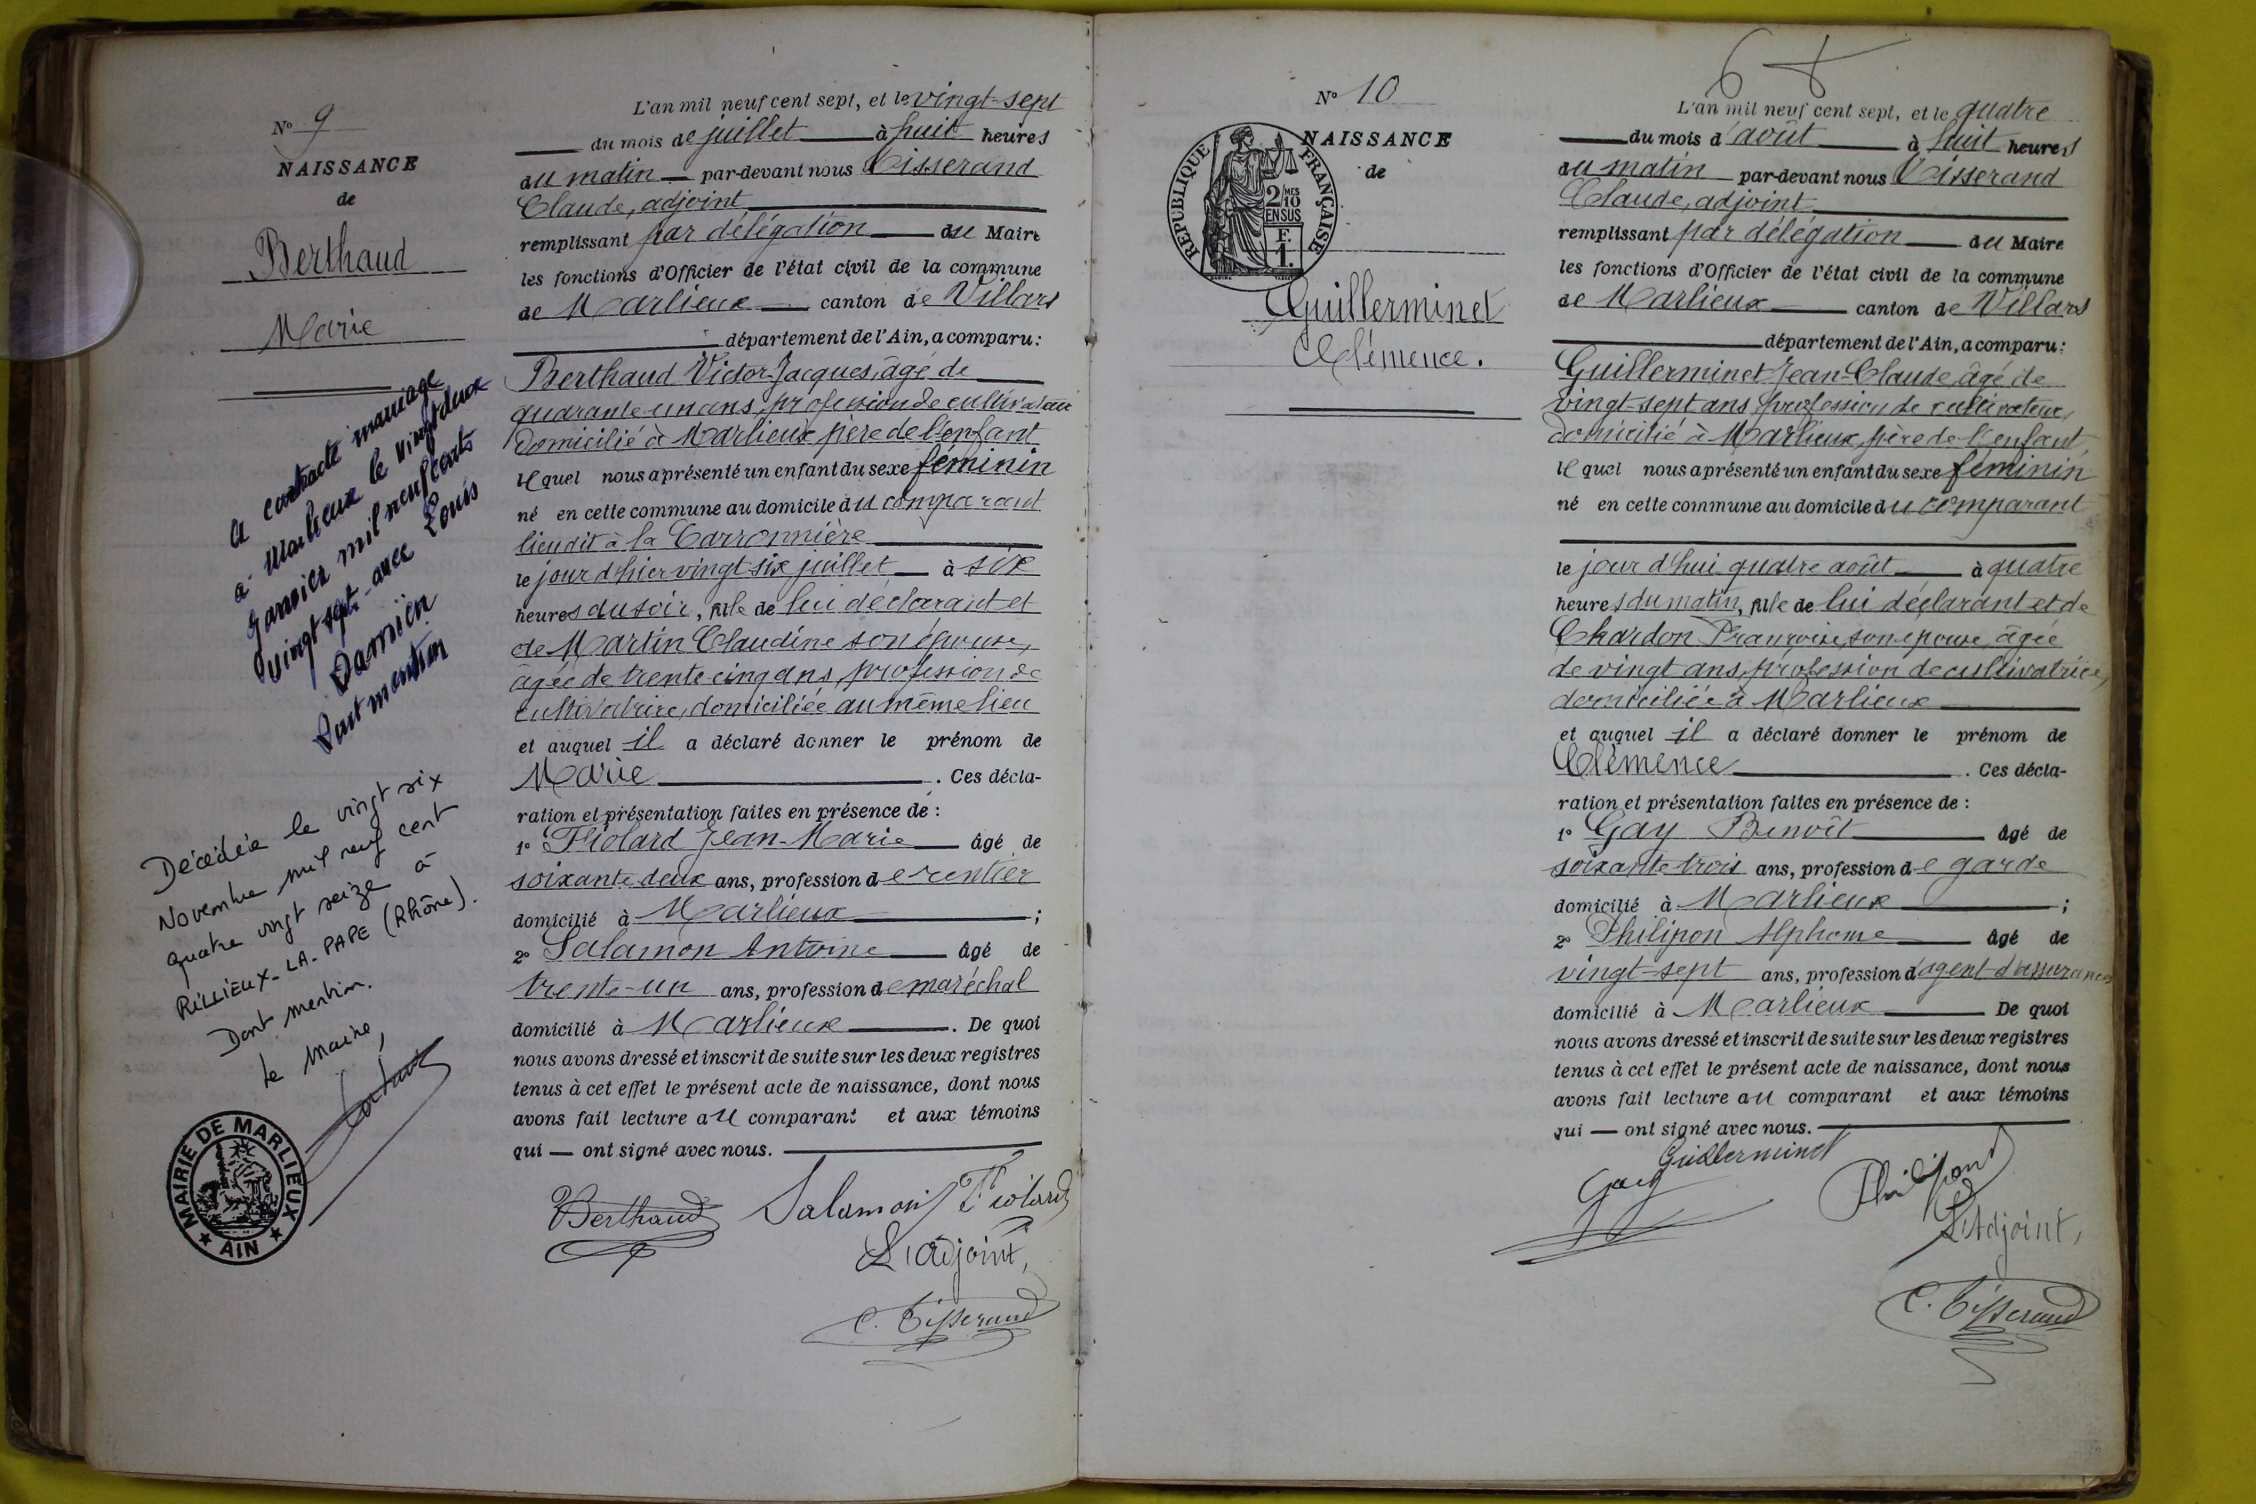 N° 9
NAISSANCE
de
Berthaud
Marie
a contracté mariage
à Marlieux le vingt deux
Janvier mil neuf cents
vingt sept avec Louis
Damiën
Dont mention
Décédée le vingt six
Novembre mil neuf cent
quatre vingt seize à
RILLIEUX-LA-PAPE (Rhône).
Dont mention.
Le Maire,
MAIRIE DE MARLIEUX
★ AIN ★
L'an mil neuf cent sept, et le vingt-sept
du mois de juillet à huit heures
du matin par-devant nous Tisserand
Claude, adjoint
remplissant par délégation du Maire
les fonctions d'Officier de l'état civil de la commune
de Marlieux canton de Villars
département de l'Ain, a comparu:
Berthaud Victor-Jacques, âgé de
quarante-un ans, profession de cultivateur
domicilié à Marlieux père de l'enfant
lequel nous a présenté un enfant du sexe féminin
né en cette commune au domicile du comparant
lieu dit à la Carronnière
le jour d'hier vingt six juillet à six
heures du soir, fille de lui déclarant et
de Martin Claudine son épouse,
âgée de trente-cinq ans, profession de
cultivatrice, domiciliée au même lieu
et auquel il a déclaré donner le prénom de
Marie . Ces décla-
ration et présentation faites en présence de :
1° Fiolard Jean-Marie âgé de
soixante deux ans, profession de rentier
domicilié à Marlieux ;
2° Salamon Antoine âgé de
trente-un ans, profession de maréchal
domicilié à Marlieux . De quoi
nous avons dressé et inscrit de suite sur les deux registres
tenus à cet effet le présent acte de naissance, dont nous
avons fait lecture au comparant et aux témoins
qui — ont signé avec nous.
Berthaud Salamon Fiolard
L'adjoint,
C. Tisserand
6
N° 10
NAISSANCE
de
RÉPUBLIQUE FRANÇAISE
2 MES 10
EN SUS
F.
1.
Guillerminet
Clémence.
L'an mil neuf cent sept, et le quatre
du mois d'août à huit heures
du matin par-devant nous Tisserand
Claude, adjoint
remplissant par délégation du Maire
les fonctions d'Officier de l'état civil de la commune
de Marlieux canton de Villars
département de l'Ain, a comparu:
Guillerminet Jean-Claude âgé de
vingt-sept ans, profession de cultivateur,
domicilié à Marlieux, père de l'enfant,
lequel nous a présenté un enfant du sexe féminin
né en cette commune au domicile du comparant
le jour d'hui quatre août à quatre
heures du matin, fille de lui déclarant et de
Chardon Françoise, son épouse, âgée
de vingt ans, profession de cultivatrice,
domiciliée à Marlieux
et auquel il a déclaré donner le prénom de
Clémence . Ces décla-
ration et présentation faites en présence de :
1° Gay Benoît âgé de
soixante trois ans, profession de garde
domicilié à Marlieux ;
2° Philipon Alphonse âgé de
vingt-sept ans, profession d'agent d'assurances
domicilié à Marlieux De quoi
nous avons dressé et inscrit de suite sur les deux registres
tenus à cet effet le présent acte de naissance, dont nous
avons fait lecture au comparant et aux témoins
qui — ont signé avec nous.
Guillerminet
Gay Philipon
L'Adjoint,
C. Tisserand